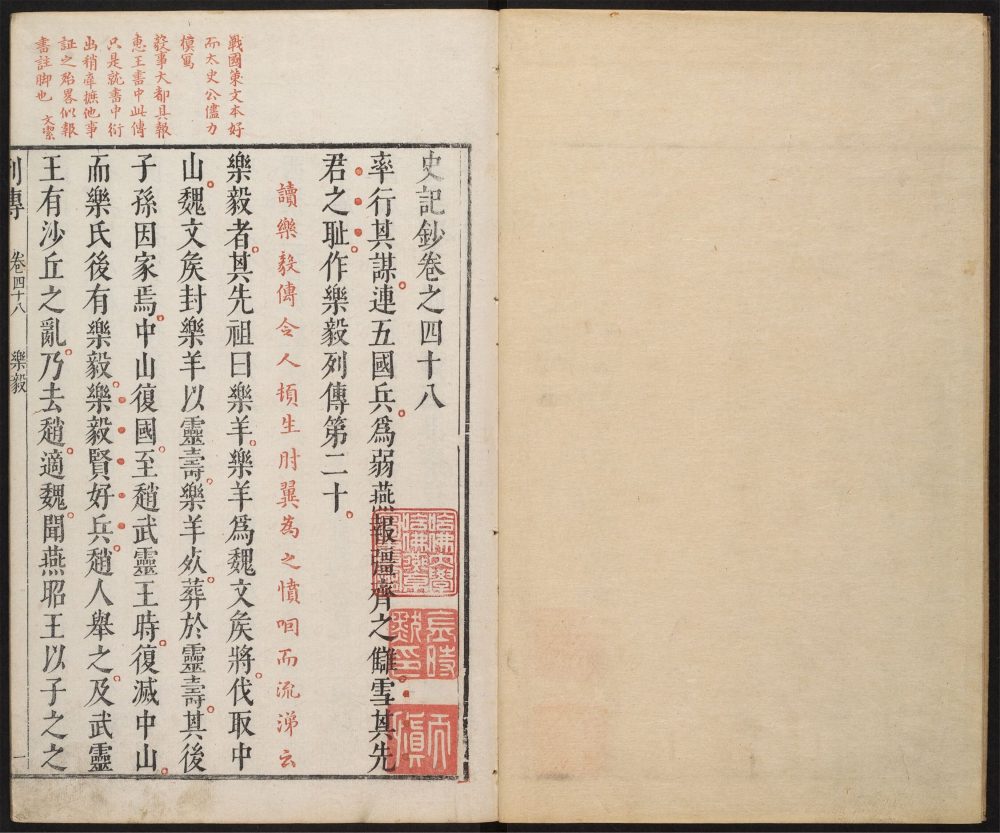 戰國策文本好
而太史公儘力
模寫
敘事大都具報
惠王書中此傳
只是就書中衍
出稍牽摭他事
証之殆畧似報
書註脚也 文㓗
史記鈔卷之四十八
率行其謀連五國兵爲弱燕報彊齊之讎雪其先
君之耻作樂毅列傳第二十
讀樂毅傳令人頓生肘翼為之憤咽而流涕云
樂毅者其先祖曰樂羊樂羊爲魏文矦將伐取中
山魏文矦封樂羊以靈壽樂羊死葬於靈壽其後
子孫因家焉中山復國至趙武靈王時復滅中山
而樂氏後有樂毅樂毅賢好兵趙人舉之及武靈
王有沙丘之亂乃去趙適魏聞燕昭王以子之之
列傳 卷四十八 樂毅 一